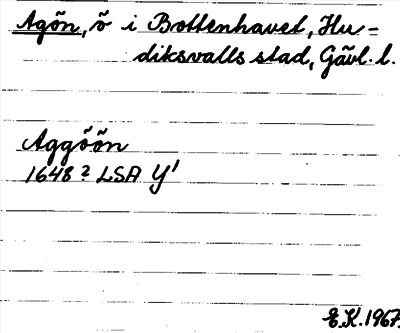 Agön, ö i Bottenhavet, Hu=
diksvalls stad, Gävl. l.
Aggöön
1648? LSA Y1
E.K. 1967.